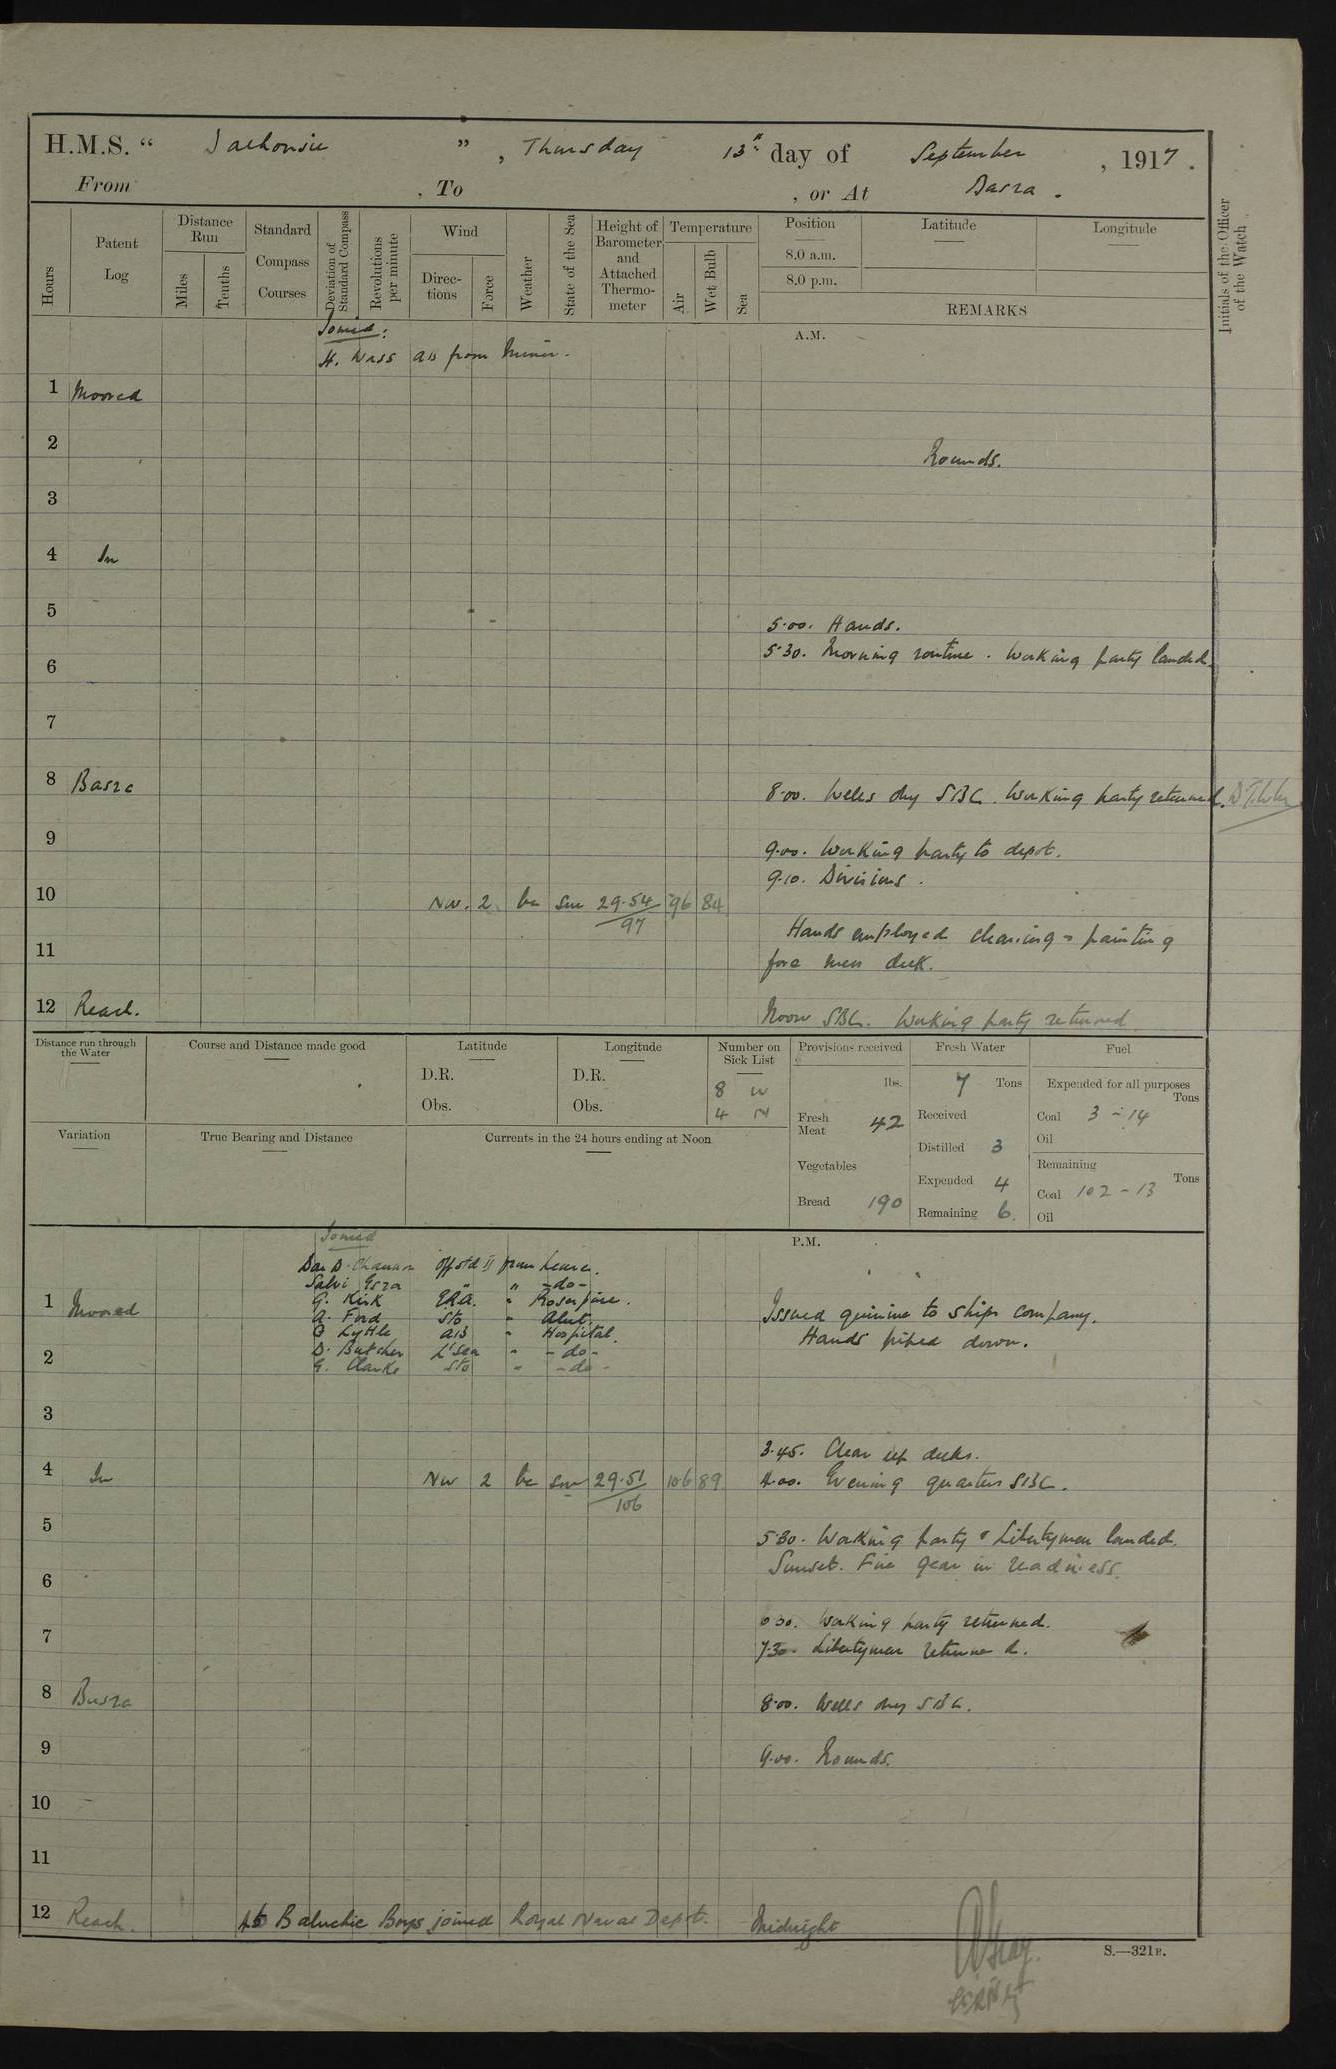 H.M.S. “ Dalhousie ” , Thursday 13th day of September , 1917 .
From , To , or At Basra .
Hours
Patent Log
Distance Run
Miles
Tenths
Standard Compass Courses
Deviation of Standard Compass
Revolutions per minute
Wind
Direc-tions
Force
Weather
State of the Sea
Height of Barometer and Attached Thermo-meter
Temperature
Air
Wet Bulb
Sea
Position
8.0 a.m.
8.0 p.m.
Latitude
Longitude
REMARKS
Initials of the Officer of the Watch
Joined:
A.M.
H. Wass AB from
1 Moored
2
Rounds.
3
4 In
5
5.00. Hands.
5.30. Morning routine. Working party landed.
6
7
8 Basra
8.00. Wells dry SBC. Working party returned.
9
9.00. Working party to depot.
9.10. Divisions.
10 NW. 2 bc sm 29.54 96 84
97
Hands employed cleaning & painting
11
fore mess deck.
12 Reach.
Noon SBC. Working party returned
Distance run through the Water
Course and Distance made good
Latitude
D.R.
Obs.
Longitude
D.R.
Obs.
Number on Sick List
8 W
4 N
Provisions received
lbs.
Fresh Meat 42
Vegetables
Bread 190
Fresh Water
7 Tons
Received
Distilled 3
Expended 4
Remaining 6
Fuel
Expended for all purposes
Tons
Coal 3 - 14
Oil
Remaining
Tons
Coal 102 - 13
Oil
Variation
True Bearing and Distance
Currents in the 24 hours ending at Noon
Joined
P.M.
from Leave.
Salvi Esra " " -do-
1 Moored
G. Kirk ERA. "
A. Ford Sto " Alert.
B Lyttle AB " Hospital.
D. Butcher L'Sea " -do-
G. Clarke Sto " -do-
Issued quinine to ships company.
Hands piped down.
2
3
3.45. Clear up decks.
4 In NW 2 bc sm 29.51 106 89
106
4.00. Evening quarters SBC.
5
5.30. Working party & Libertymen landed.
Sunset. Fire gear in readiness.
6
6.30. Working party returned.
7
7.30. Libertymen returned.
8 Busra
8.00. Wells dry SBC.
9
9.00. Rounds.
10
11
12 Reach. Baluchie Boys joined Royal Naval Depot. Midnight
S.—321B.